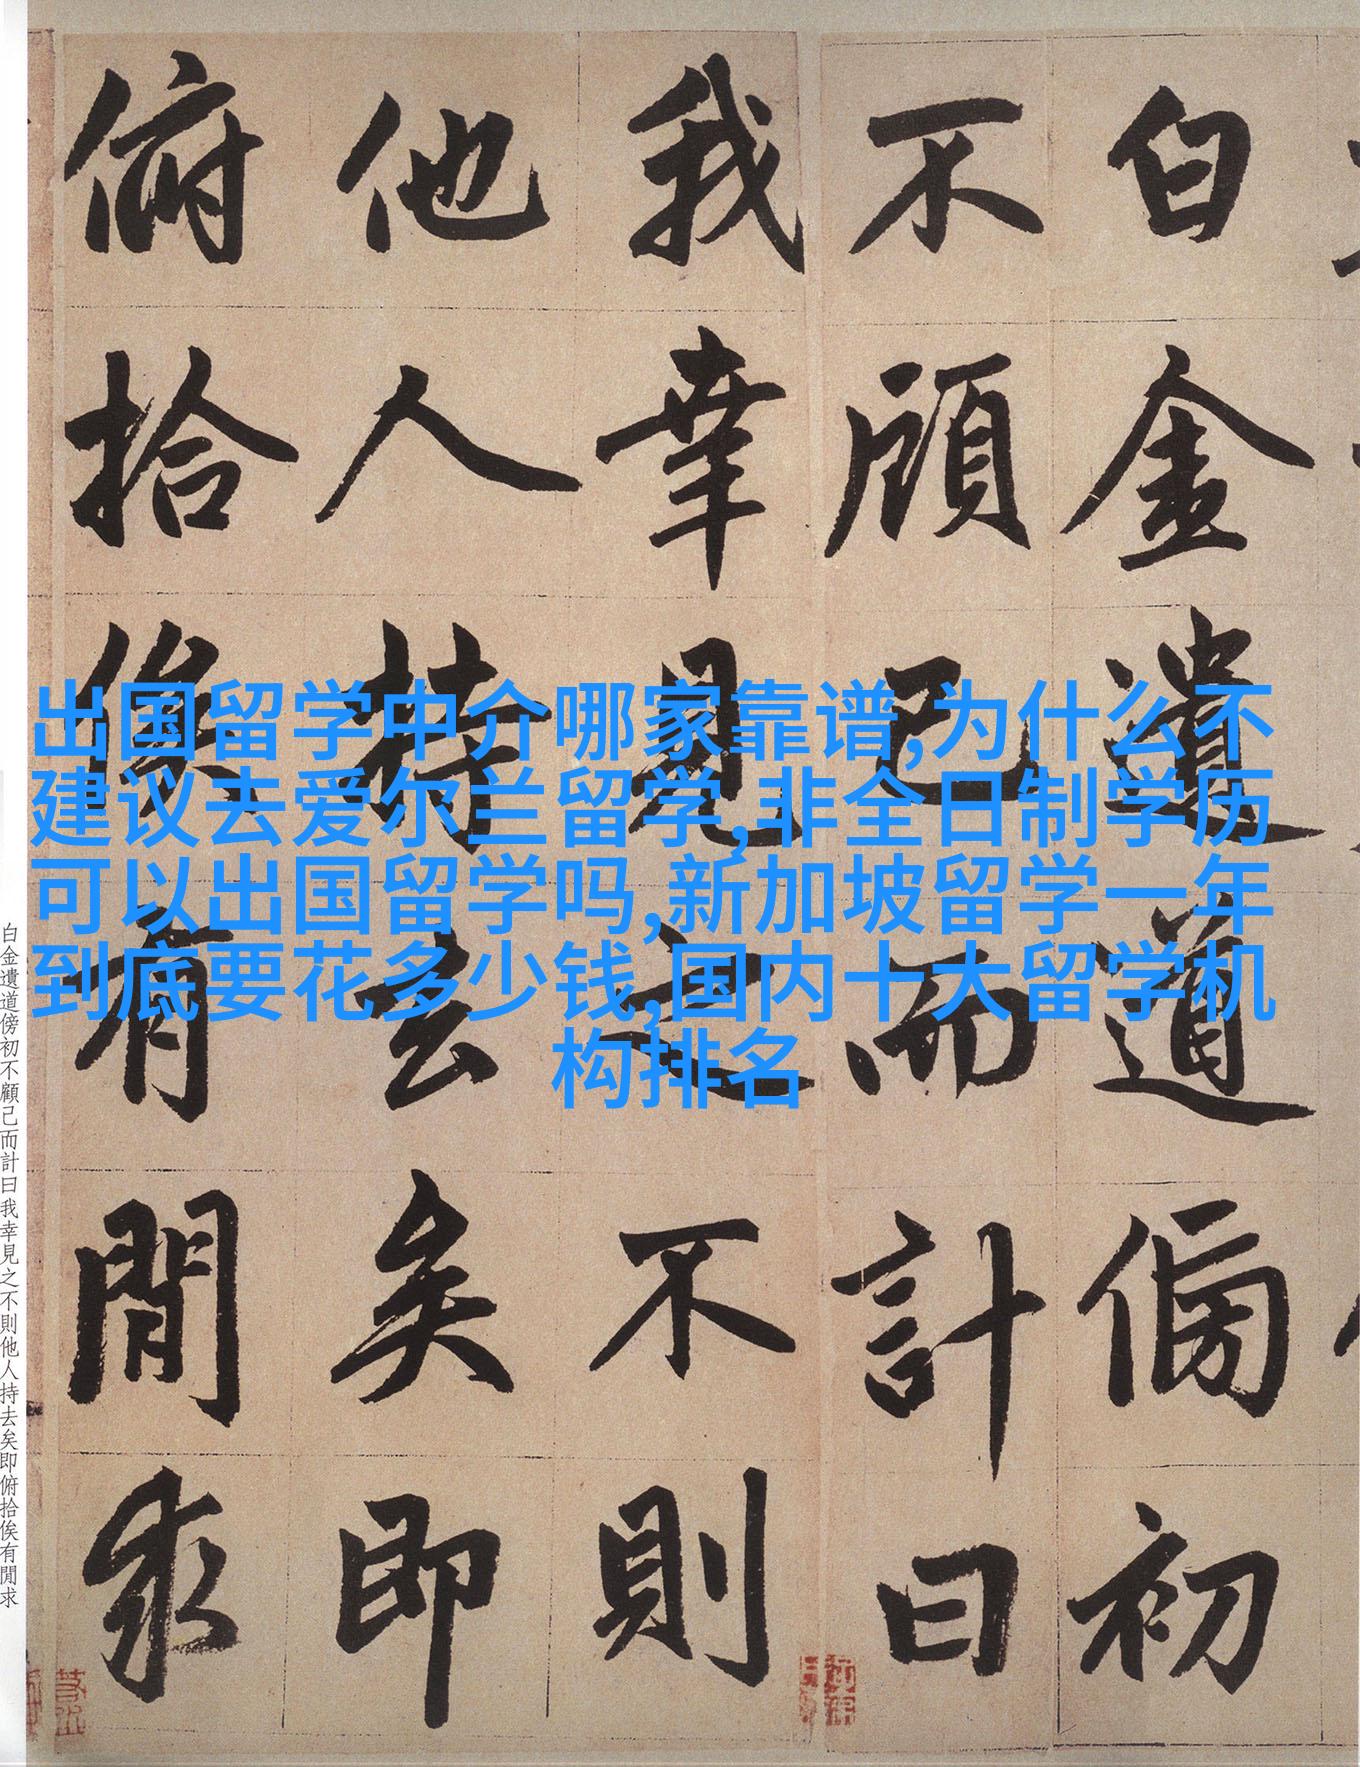 白金遺道傍初
不顧己而計曰
我幸見之不則
他人持去矣即
俯拾俟有閒求
出国留学中介哪家靠谱,为什么不
建议去爱尔兰留学,非全日制学历
可以出国留学吗,新加坡留学一年
到底要花多少钱,国内十大留学机
构排名
白金遺道傍初不顧己而計曰我幸見之不則他人持去矣即俯拾俟有閒求